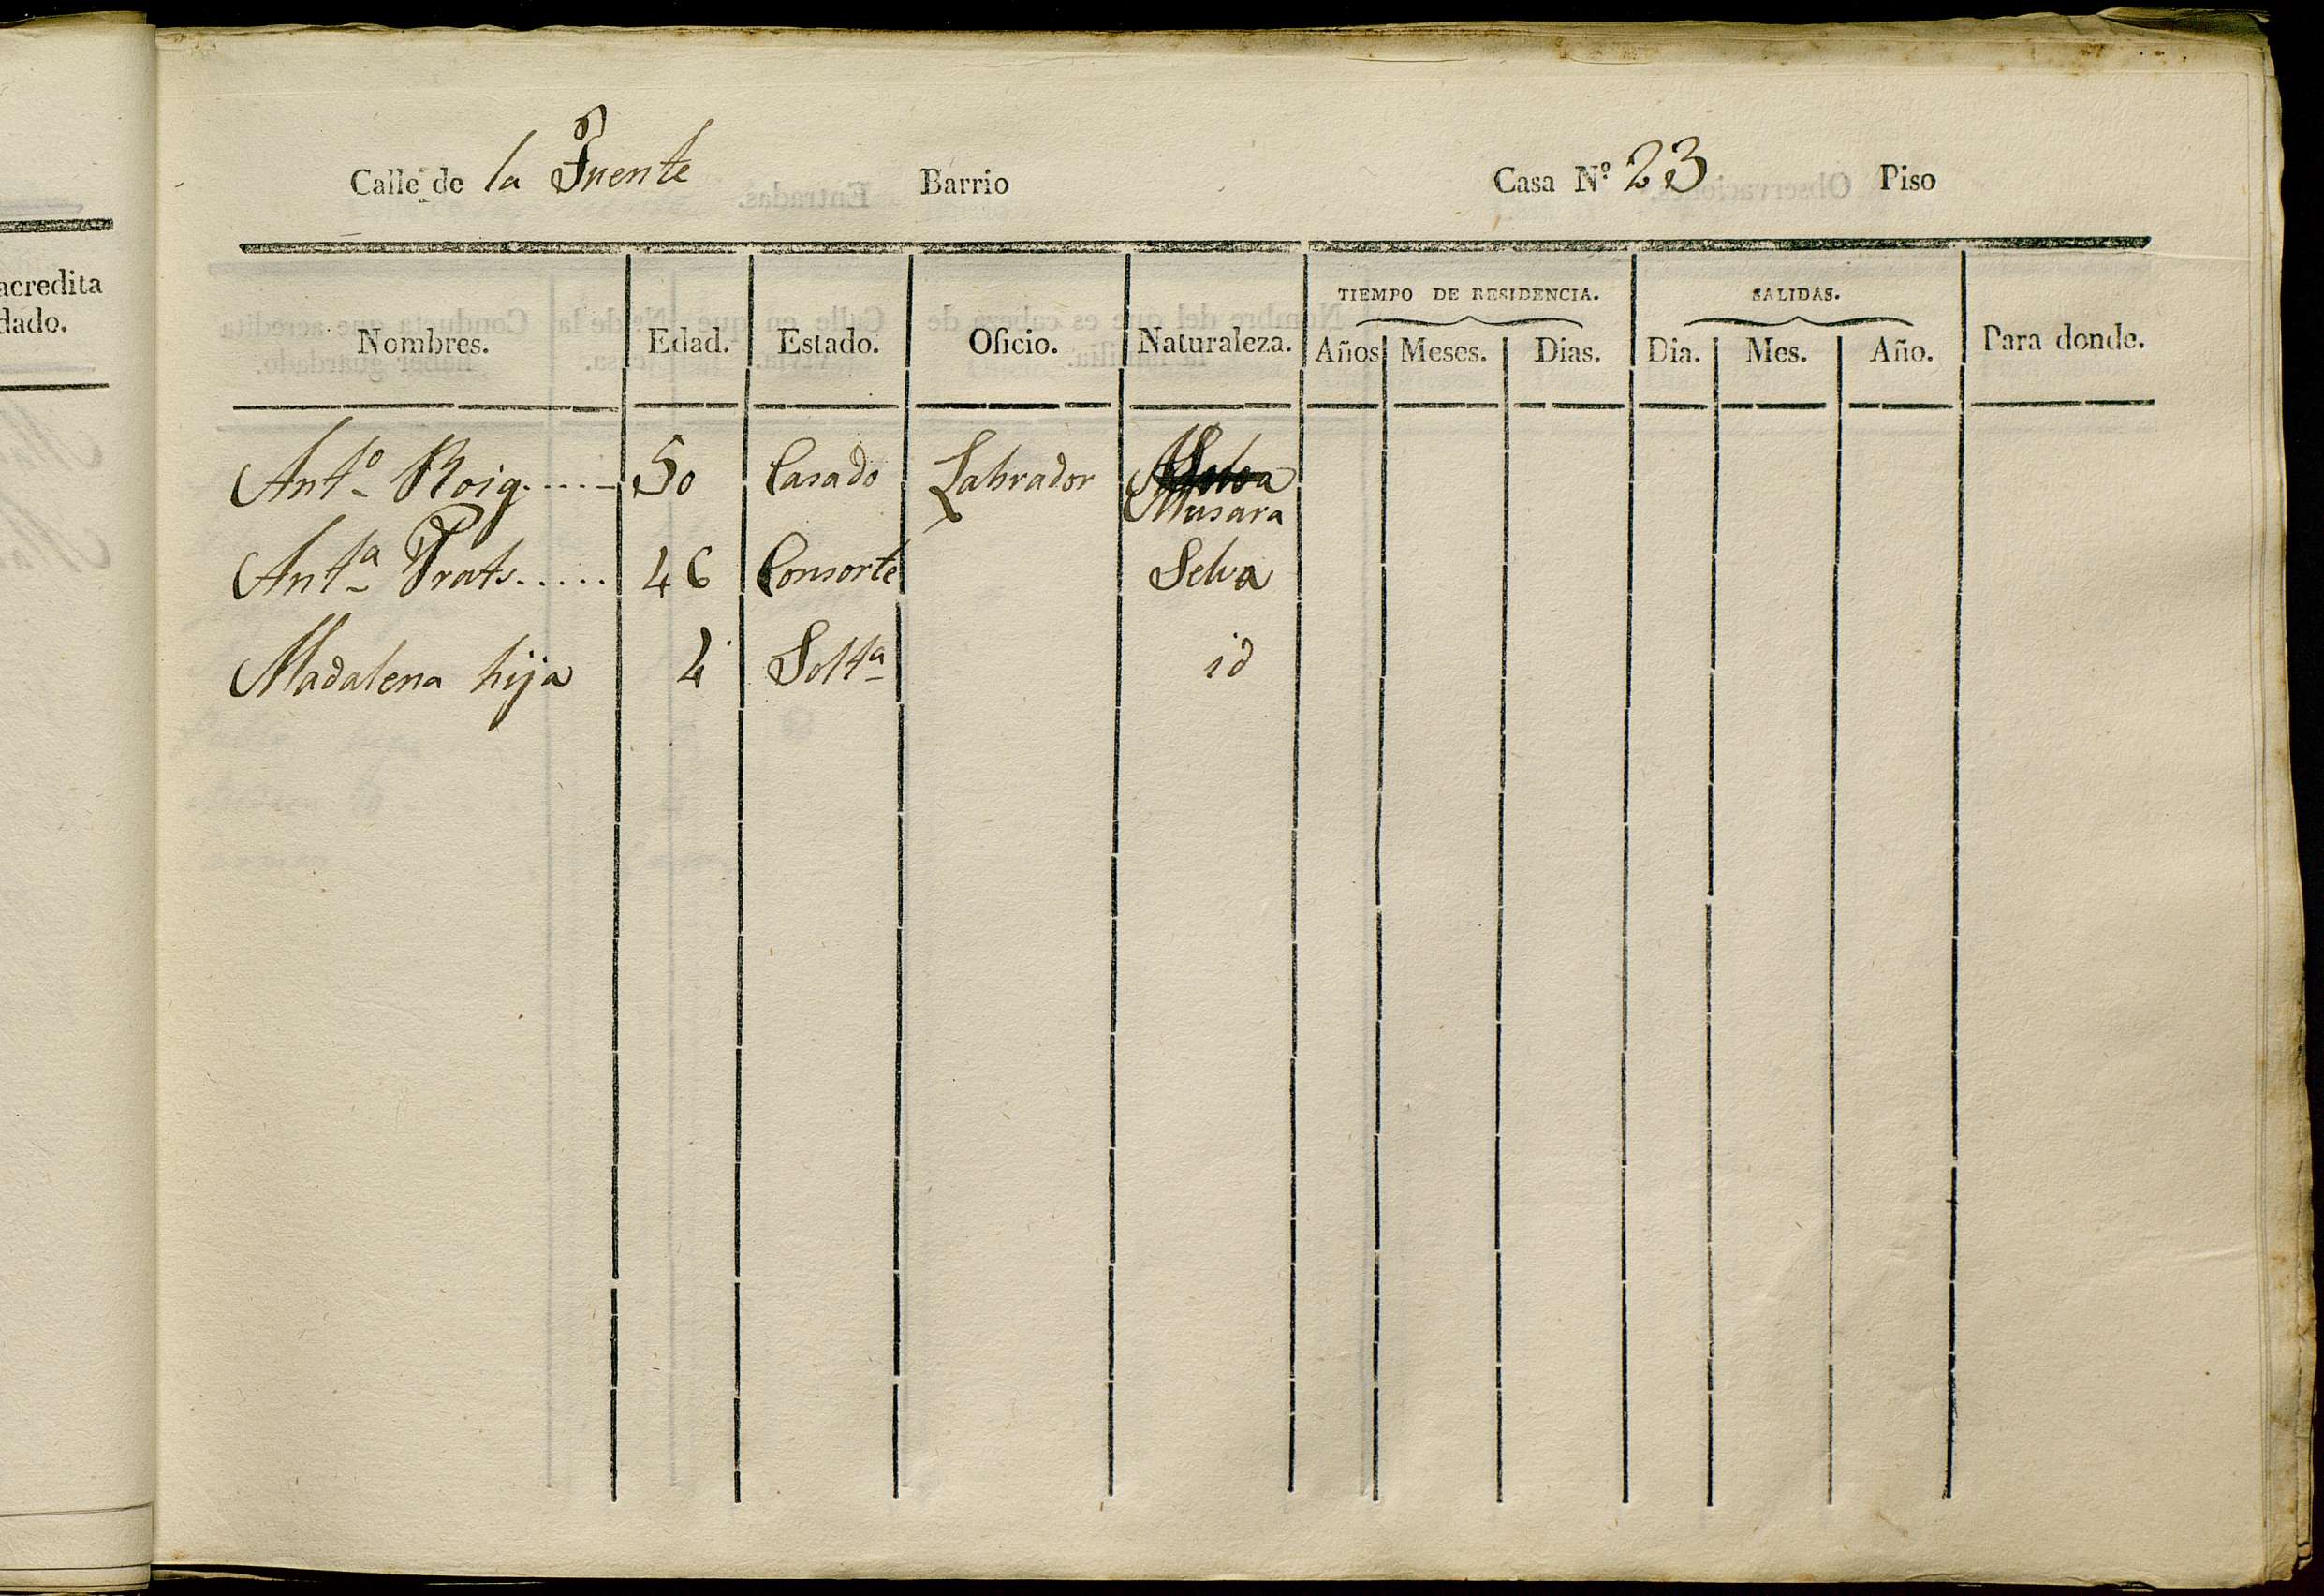 Calle de la Fuente Barrio Casa N.º 23 Piso
acredita
dado.
TIEMPO DE RESIDENCIA. SALIDAS.
Nombres. Edad. Estado. Oficio. Naturaleza. Años Meses. Dias. Dia. Mes. Año. Para donde.
Antº Roig..... 50 Casado Labrador
Musara
Antª Prats..... 46 Consorte Selva
Madalena hija 4 Soltª id